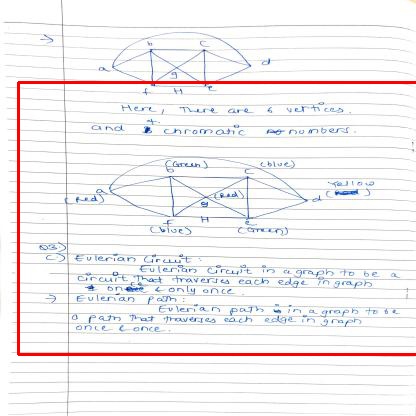 →
b c
a g d
f H e
Here, There are 6 vertices.
and 4 chromatic numbers.
(Green) (blue)
b c
a Yellow
(Red) g (Red) d
f H e
(blue) (Green)
Q3)
C) Eulerian Circuit:
Eulerian Circuit in a graph to be a
circuit that traverses each edge in graph
once & only once.
→ Eulerian path:
Eulerian path in a graph to be
a path that traverses each edge in graph
once & once.